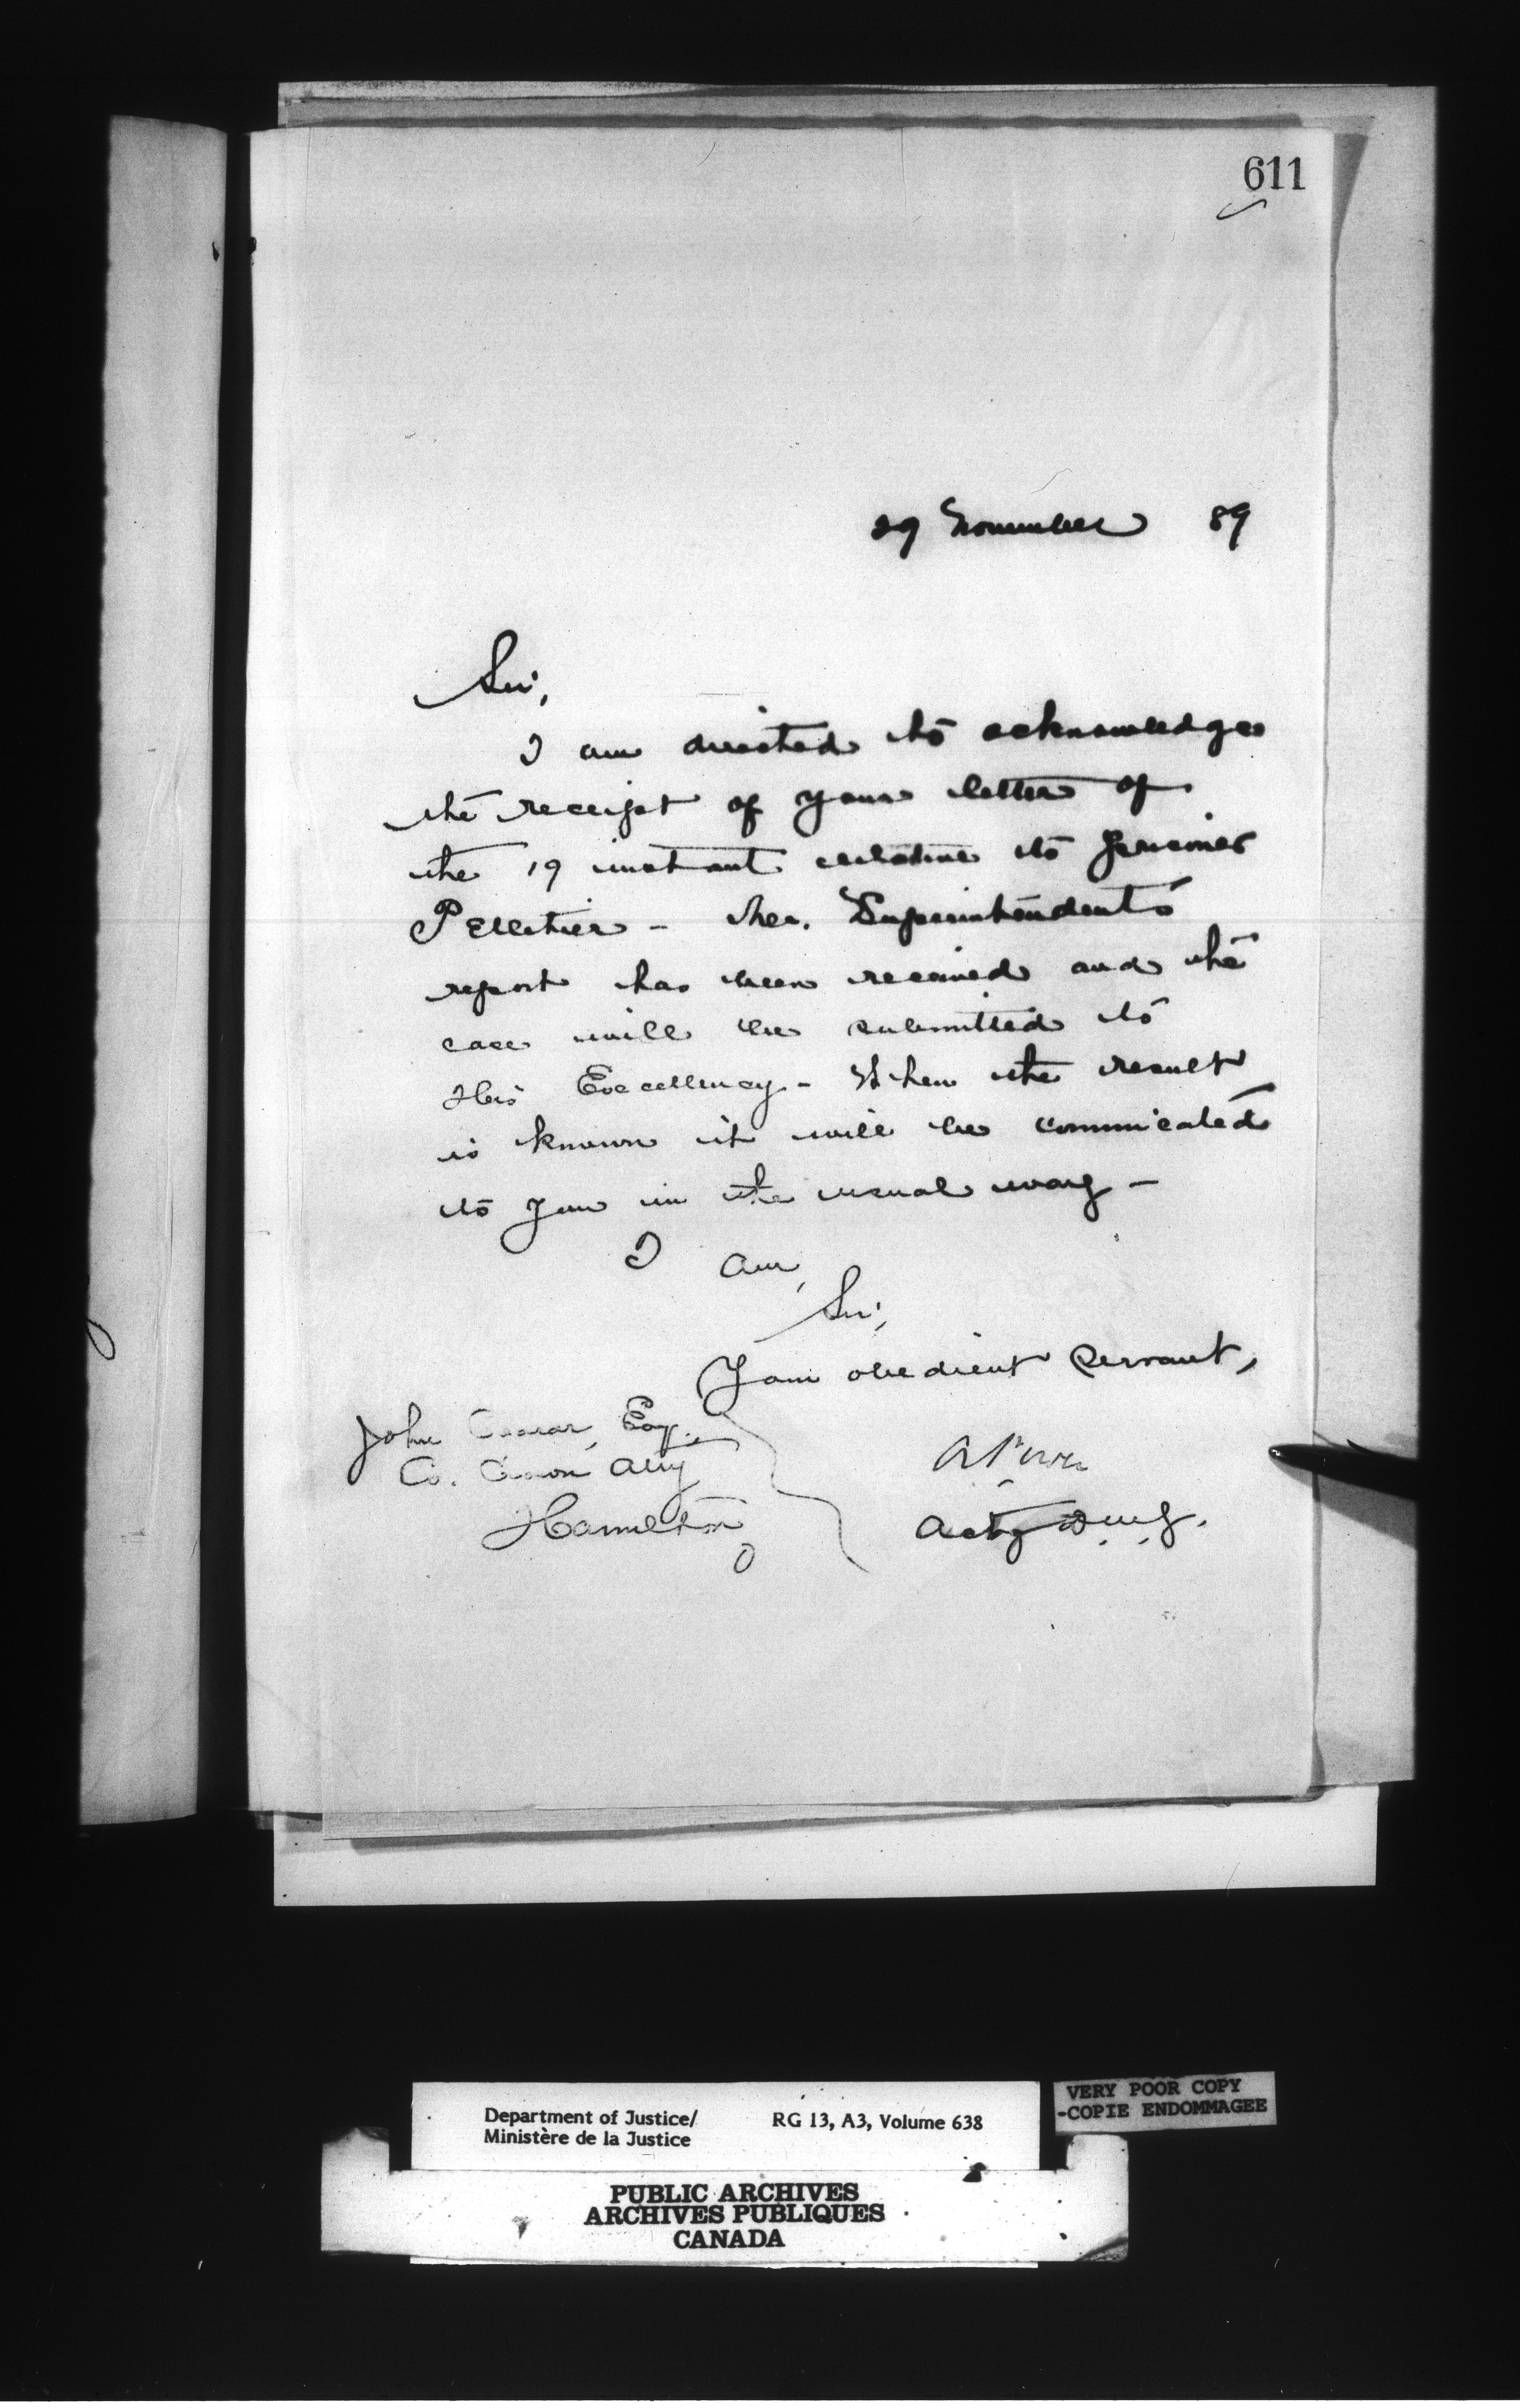 611
29 November 89
Sir,
I am directed to acknowledge
the receipt of your letter of
the 19 instant relative to
Pelletier - The Superintendent's
report has been received and the
case will be submitted to
His Excellency - When the result
is known it will be commnicated
to you in the usual way -
I am,
Sir,
Your obedient servant,
John Crerar, Esq.
Co. Crown Atty
Hamilton
O
A Power
Actg D.M.J.
Department of Justice/
Ministère de la Justice
RG 13, A3, Volume 638
VERY POOR COPY
-COPIE ENDOMMAGEE
PUBLIC ARCHIVES
ARCHIVES PUBLIQUES
CANADA